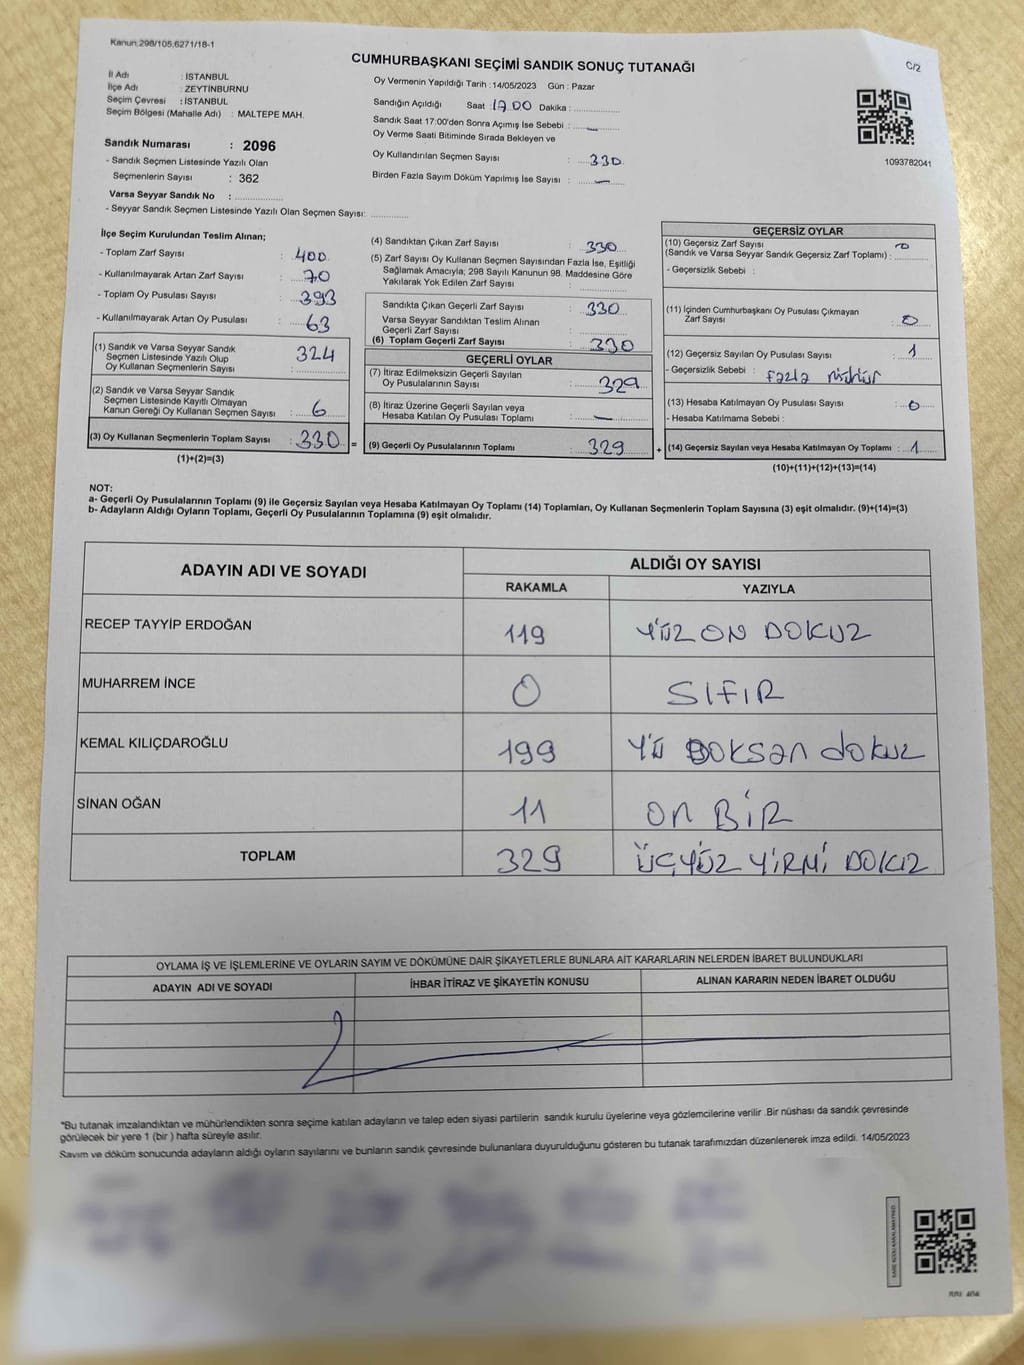 Kanun;298/105,6271/18-1
C/2
CUMHURBAŞKANI SEÇİMİ SANDIK SONUÇ TUTANAĞI
İl Adı : İSTANBUL
İlçe Adı : ZEYTİNBURNU
Seçim Çevresi : İSTANBUL
Seçim Bölgesi (Mahalle Adı) : MALTEPE MAH.
Sandık Numarası : 2096
- Sandık Seçmen Listesinde Yazılı Olan
Seçmenlerin Sayısı : 362
Varsa Seyyar Sandık No : ..............
- Seyyar Sandık Seçmen Listesinde Yazılı Olan Seçmen Sayısı: ............
Oy Vermenin Yapıldığı Tarih : 14/05/2023 Gün : Pazar
Sandığın Açıldığı Saat : 17 00 Dakika : ..............
Sandık Saat 17:00'den Sonra Açımış İse Sebebi : —
Oy Verme Saati Bitiminde Sırada Bekleyen ve
Oy Kullandırılan Seçmen Sayısı : 330
Birden Fazla Sayım Döküm Yapılmış İse Sayısı : —
1093782041
İlçe Seçim Kurulundan Teslim Alınan;
- Toplam Zarf Sayısı : 400
- Kullanılmayarak Artan Zarf Sayısı : 70
- Toplam Oy Pusulası Sayısı : 393
- Kullanılmayarak Artan Oy Pusulası : 63
(1) Sandık ve Varsa Seyyar Sandık
Seçmen Listesinde Yazılı Olup
Oy Kullanan Seçmenlerin Sayısı : 324
(2) Sandık ve Varsa Seyyar Sandık
Seçmen Listesinde Kayıtlı Olmayan
Kanun Gereği Oy Kullanan Seçmen Sayısı : 6
(3) Oy Kullanan Seçmenlerin Toplam Sayısı : 330 =
(1)+(2)=(3)
(4) Sandıktan Çıkan Zarf Sayısı : 330
(5) Zarf Sayısı Oy Kullanan Seçmen Sayısından Fazla İse, Eşitliği
Sağlamak Amacıyla; 298 Sayılı Kanunun 98. Maddesine Göre
Yakılarak Yok Edilen Zarf Sayısı : ..............
Sandıkta Çıkan Geçerli Zarf Sayısı : 330
Varsa Seyyar Sandıktan Teslim Alınan
Geçerli Zarf Sayısı : ..............
(6) Toplam Geçerli Zarf Sayısı : 330
GEÇERLİ OYLAR
(7) İtiraz Edilmeksizin Geçerli Sayılan
Oy Pusulalarının Sayısı : 329
(8) İtiraz Üzerine Geçerli Sayılan veya
Hesaba Katılan Oy Pusulası Toplamı : —
(9) Geçerli Oy Pusulalarının Toplamı : 329 +
GEÇERSİZ OYLAR
(10) Geçersiz Zarf Sayısı 0
(Sandık ve Varsa Seyyar Sandık Geçersiz Zarf Toplamı) : ..........
- Geçersizlik Sebebi :
(11) İçinden Cumhurbaşkanı Oy Pusulası Çıkmayan
Zarf Sayısı : 0
(12) Geçersiz Sayılan Oy Pusulası Sayısı : 1
- Geçersizlik Sebebi : fazla mühür
(13) Hesaba Katılmayan Oy Pusulası Sayısı : 0
- Hesaba Katılmama Sebebi :
(14) Geçersiz Sayılan veya Hesaba Katılmayan Oy Toplamı : 1
(10)+(11)+(12)+(13)=(14)
NOT:
a- Geçerli Oy Pusulalarının Toplamı (9) ile Geçersiz Sayılan veya Hesaba Katılmayan Oy Toplamı (14) Toplamları, Oy Kullanan Seçmenlerin Toplam Sayısına (3) eşit olmalıdır. (9)+(14)=(3)
b- Adayların Aldığı Oyların Toplamı, Geçerli Oy Pusulalarının Toplamına (9) eşit olmalıdır.
ADAYIN ADI VE SOYADI ALDIĞI OY SAYISI
RAKAMLA YAZIYLA
RECEP TAYYİP ERDOĞAN 119 YÜZ ON DOKUZ
MUHARREM İNCE 0 SIFIR
KEMAL KILIÇDAROĞLU 199 YÜ DOKSAN dokuz
SİNAN OĞAN 11 ON BİR
TOPLAM 329 ÜÇYÜZ YİRMİ DOKUZ
OYLAMA İŞ VE İŞLEMLERİNE VE OYLARIN SAYIM VE DÖKÜMÜNE DAİR ŞİKAYETLERLE BUNLARA AİT KARARLARIN NELERDEN İBARET BULUNDUKLARI
ADAYIN ADI VE SOYADI İHBAR İTİRAZ VE ŞİKAYETİN KONUSU ALINAN KARARIN NEDEN İBARET OLDUĞU
*Bu tutanak imzalandıktan ve mühürlendikten sonra seçime katılan adayların ve talep eden siyasi partilerin sandık kurulu üyelerine veya gözlemcilerine verilir .Bir nüshası da sandık çevresinde
görülecek bir yere 1 (bir ) hafta süreyle asılır.
Sayım ve döküm sonucunda adayların aldığı oyların sayılarını ve bunların sandık çevresinde bulunanlara duyurulduğunu gösteren bu tutanak tarafımızdan düzenlenerek imza edildi. 14/05/2023
KARE KODU KARALAMAYINIZ!